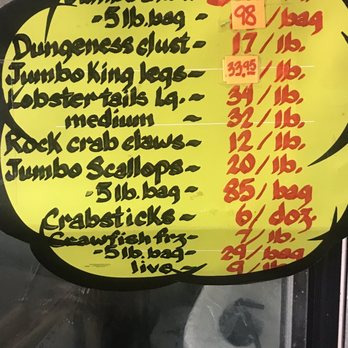 -5 lb. bag 98 / bag
Dungeness clust- 17 / lb.
Jumbo King legs- 33.95 / lb.
Lobster tails Lg. ~ 34 / lb.
medium ~ 32 / lb.
Rock crab claws~ 12 / lb.
Jumbo Scallops~ 20 / lb.
-5 lb. bag~ 85 / bag
Crabsticks~ 6 / doz.
Crawfish frz~ 7 / lb.
-5 lb. bag~ 29 / bag
live~ 9 / lb.